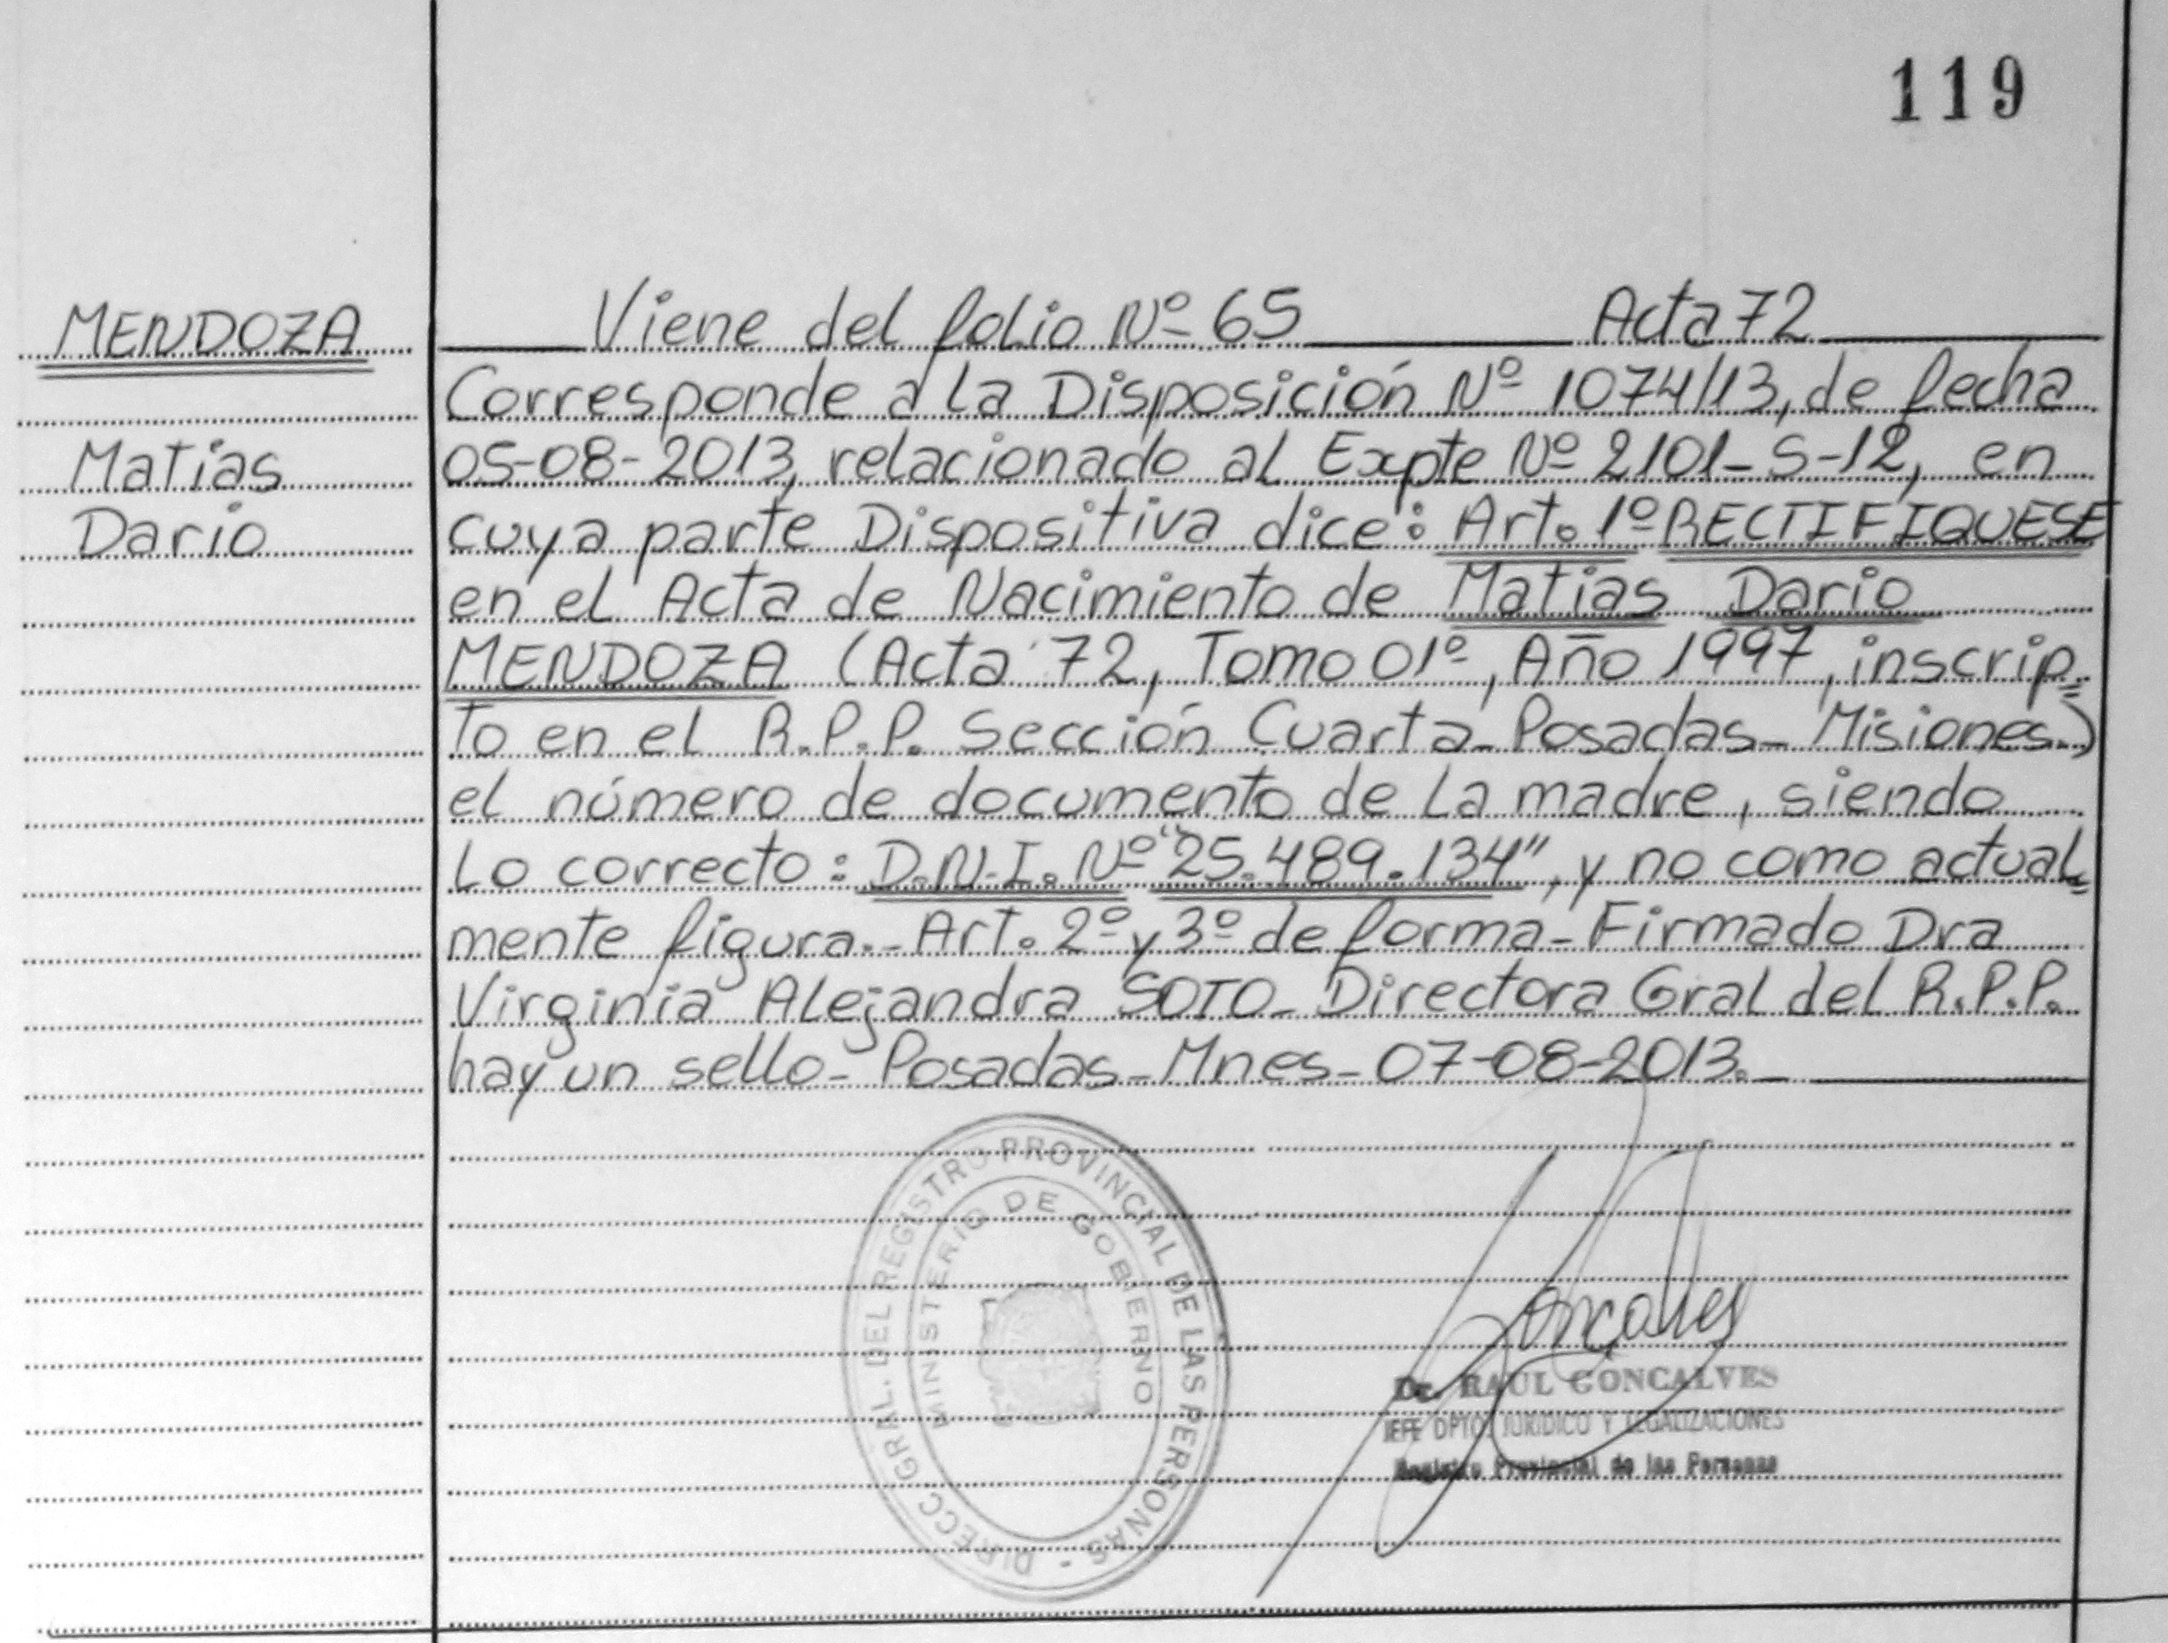 119
MENDOZA
Matias
Dario
Viene del folio Nº 65 Acta 72
Corresponde a la Disposición Nº 1074/13, de fecha
05-08-2013, relacionado al Expte Nº 2101-S-12, en
cuya parte Dispositiva dice: Art. 1º RECTIFIQUESE
en el Acta de Nacimiento de Matias Dario
MENDOZA (Acta 72, Tomo 01º, Año 1997, inscrip=
to en el R.P.P. Sección Cuarta- Posadas- Misiones-)
el número de documento de la madre, siendo
lo correcto: D.N.I. Nº "25.489.134", y no como actual=
mente figura.- Art. 2º y 3º de forma- Firmado Dra
Virginia Alejandra SOTO- Directora Gral del R.P.P.
hay un sello- Posadas- Mnes- 07-08-2013.-
DIRECC. GRAL. DEL REGISTRO PROVINCIAL DE LAS PERSONAS -
MINISTERIO DE GOBIERNO
Goncalves
Dr. RAUL GONCALVES
JEFE DPTO. JURIDICO Y LEGALIZACIONES
Registro Provincial de las Personas